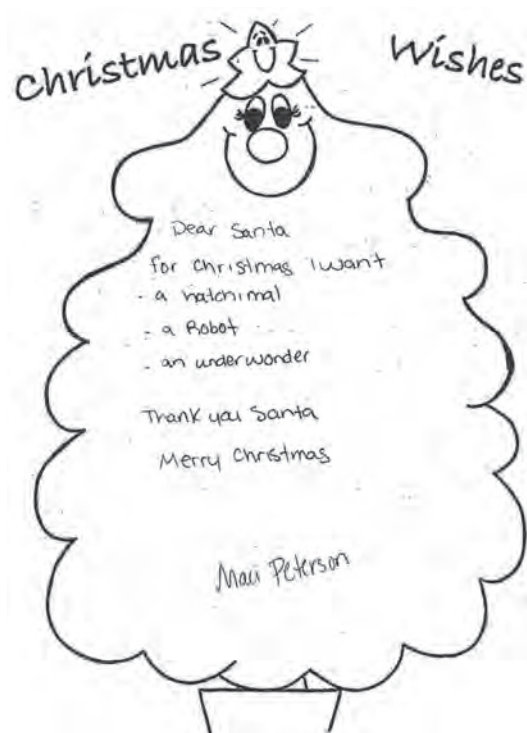 Christmas Wishes
Dear Santa
for christmas i want
- a hatchimal
- a Robot
- an underwonder
Thank you Santa
Merry Christmas
Maci Peterson